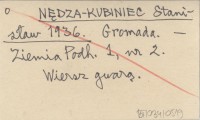 o NĘDZA-KUBINIEC Stani-
sław 1936. Gromada. —
Ziemia Podh. 1, nr 2.
Wiersz gwarą.